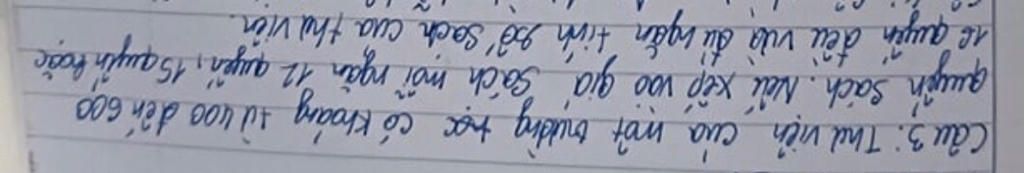 Câu 3: Thư viện của một trường học có khoảng từ 400 đến 600
quyển sách. Nếu xếp vào giá sách mỗi ngăn 12 quyển, 15 quyển hoặc
18 quyển đều vừa đủ ngăn tính số sách của thư viện.